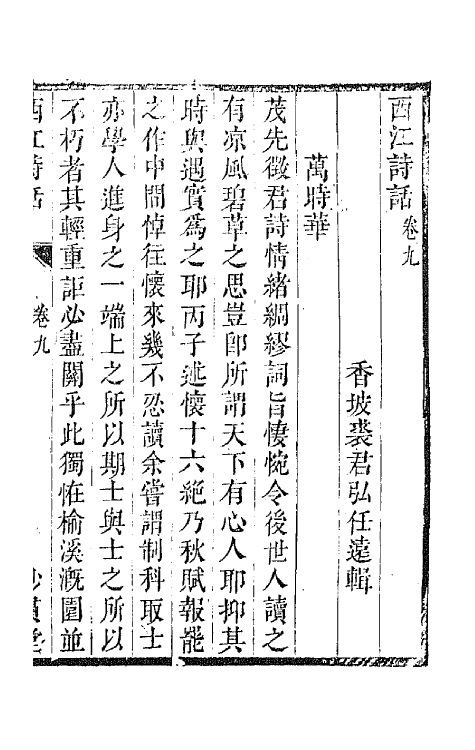 西江詩話卷九
香坡裘君弘任遠輯
萬時華
茂先徵君詩情緒綢繆詞旨悽惋令後世人讀之
有凉風碧草之思豈卽所謂天下有心人耶抑其
時與遇實爲之耶丙子述懷十六絶乃秋賦報罷
之作中間悼往懷來幾不忍讀余嘗謂制科取士
亦學人進身之一端上之所以期士與士之所以
不朽者其輕重詎必盡關乎此獨恠榆溪溉園並
西江詩話
卷九
妙貫堂